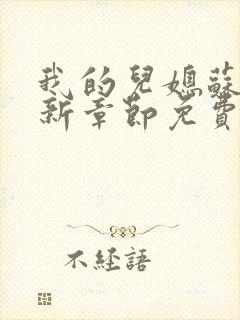 我的兒媳蘇
新章節免費
不經語